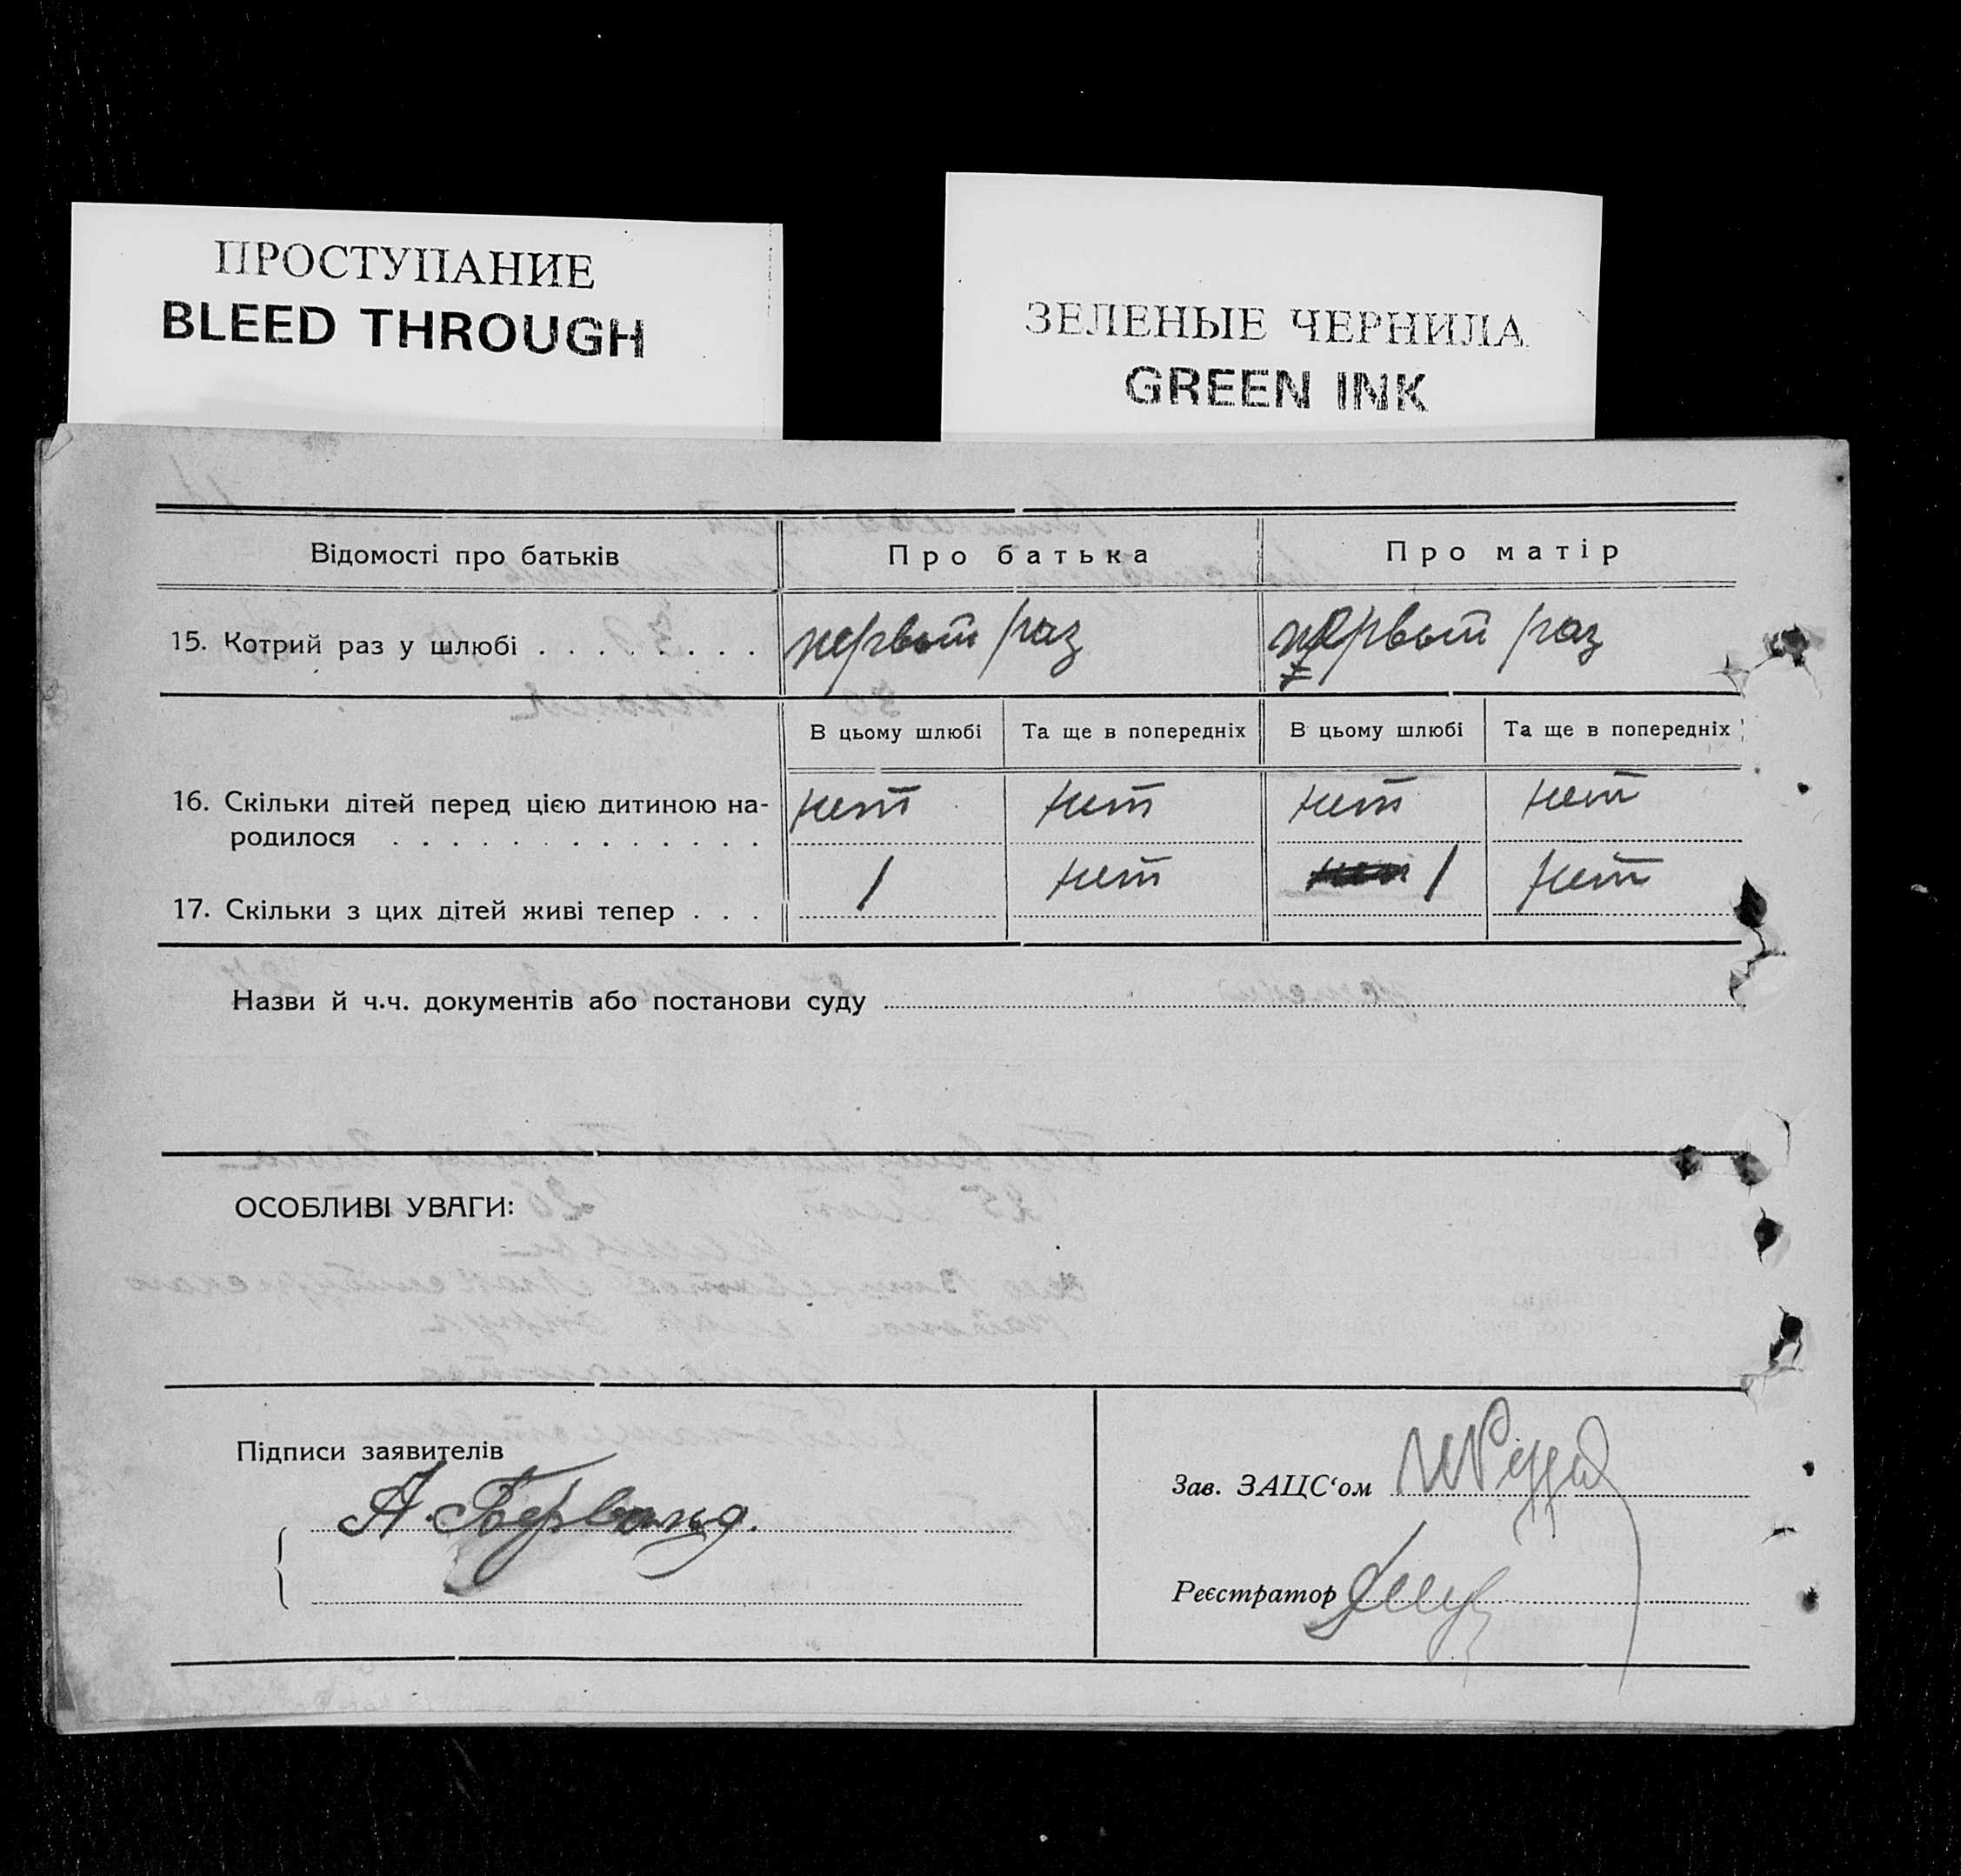 ПРОСТУПАНИЕ
BLEED THROUGH
ЗЕЛЕНЫЕ ЧЕРНИЛА
GREEN INK
Відомості про батьків Про батька Про матір
15. Котрий раз у шлюбі . . . . . . . . первый раз первый раз
В цьому шлюбі Та ще в попередніх В цьому шлюбі Та ще в попередніх
16. Скільки дітей перед цією дитиною на- нет нет нет нет
родилося . . . . . . . . . . . . .
17. Скільки з цих дітей живі тепер . . . 1 нет 1 нет
Назви й ч.ч. документів або постанови суду
ОСОБЛИВІ УВАГИ:
Підписи заявителів
А. Бервальд.
Зав. ЗАЦС‘ом
Реєстратор